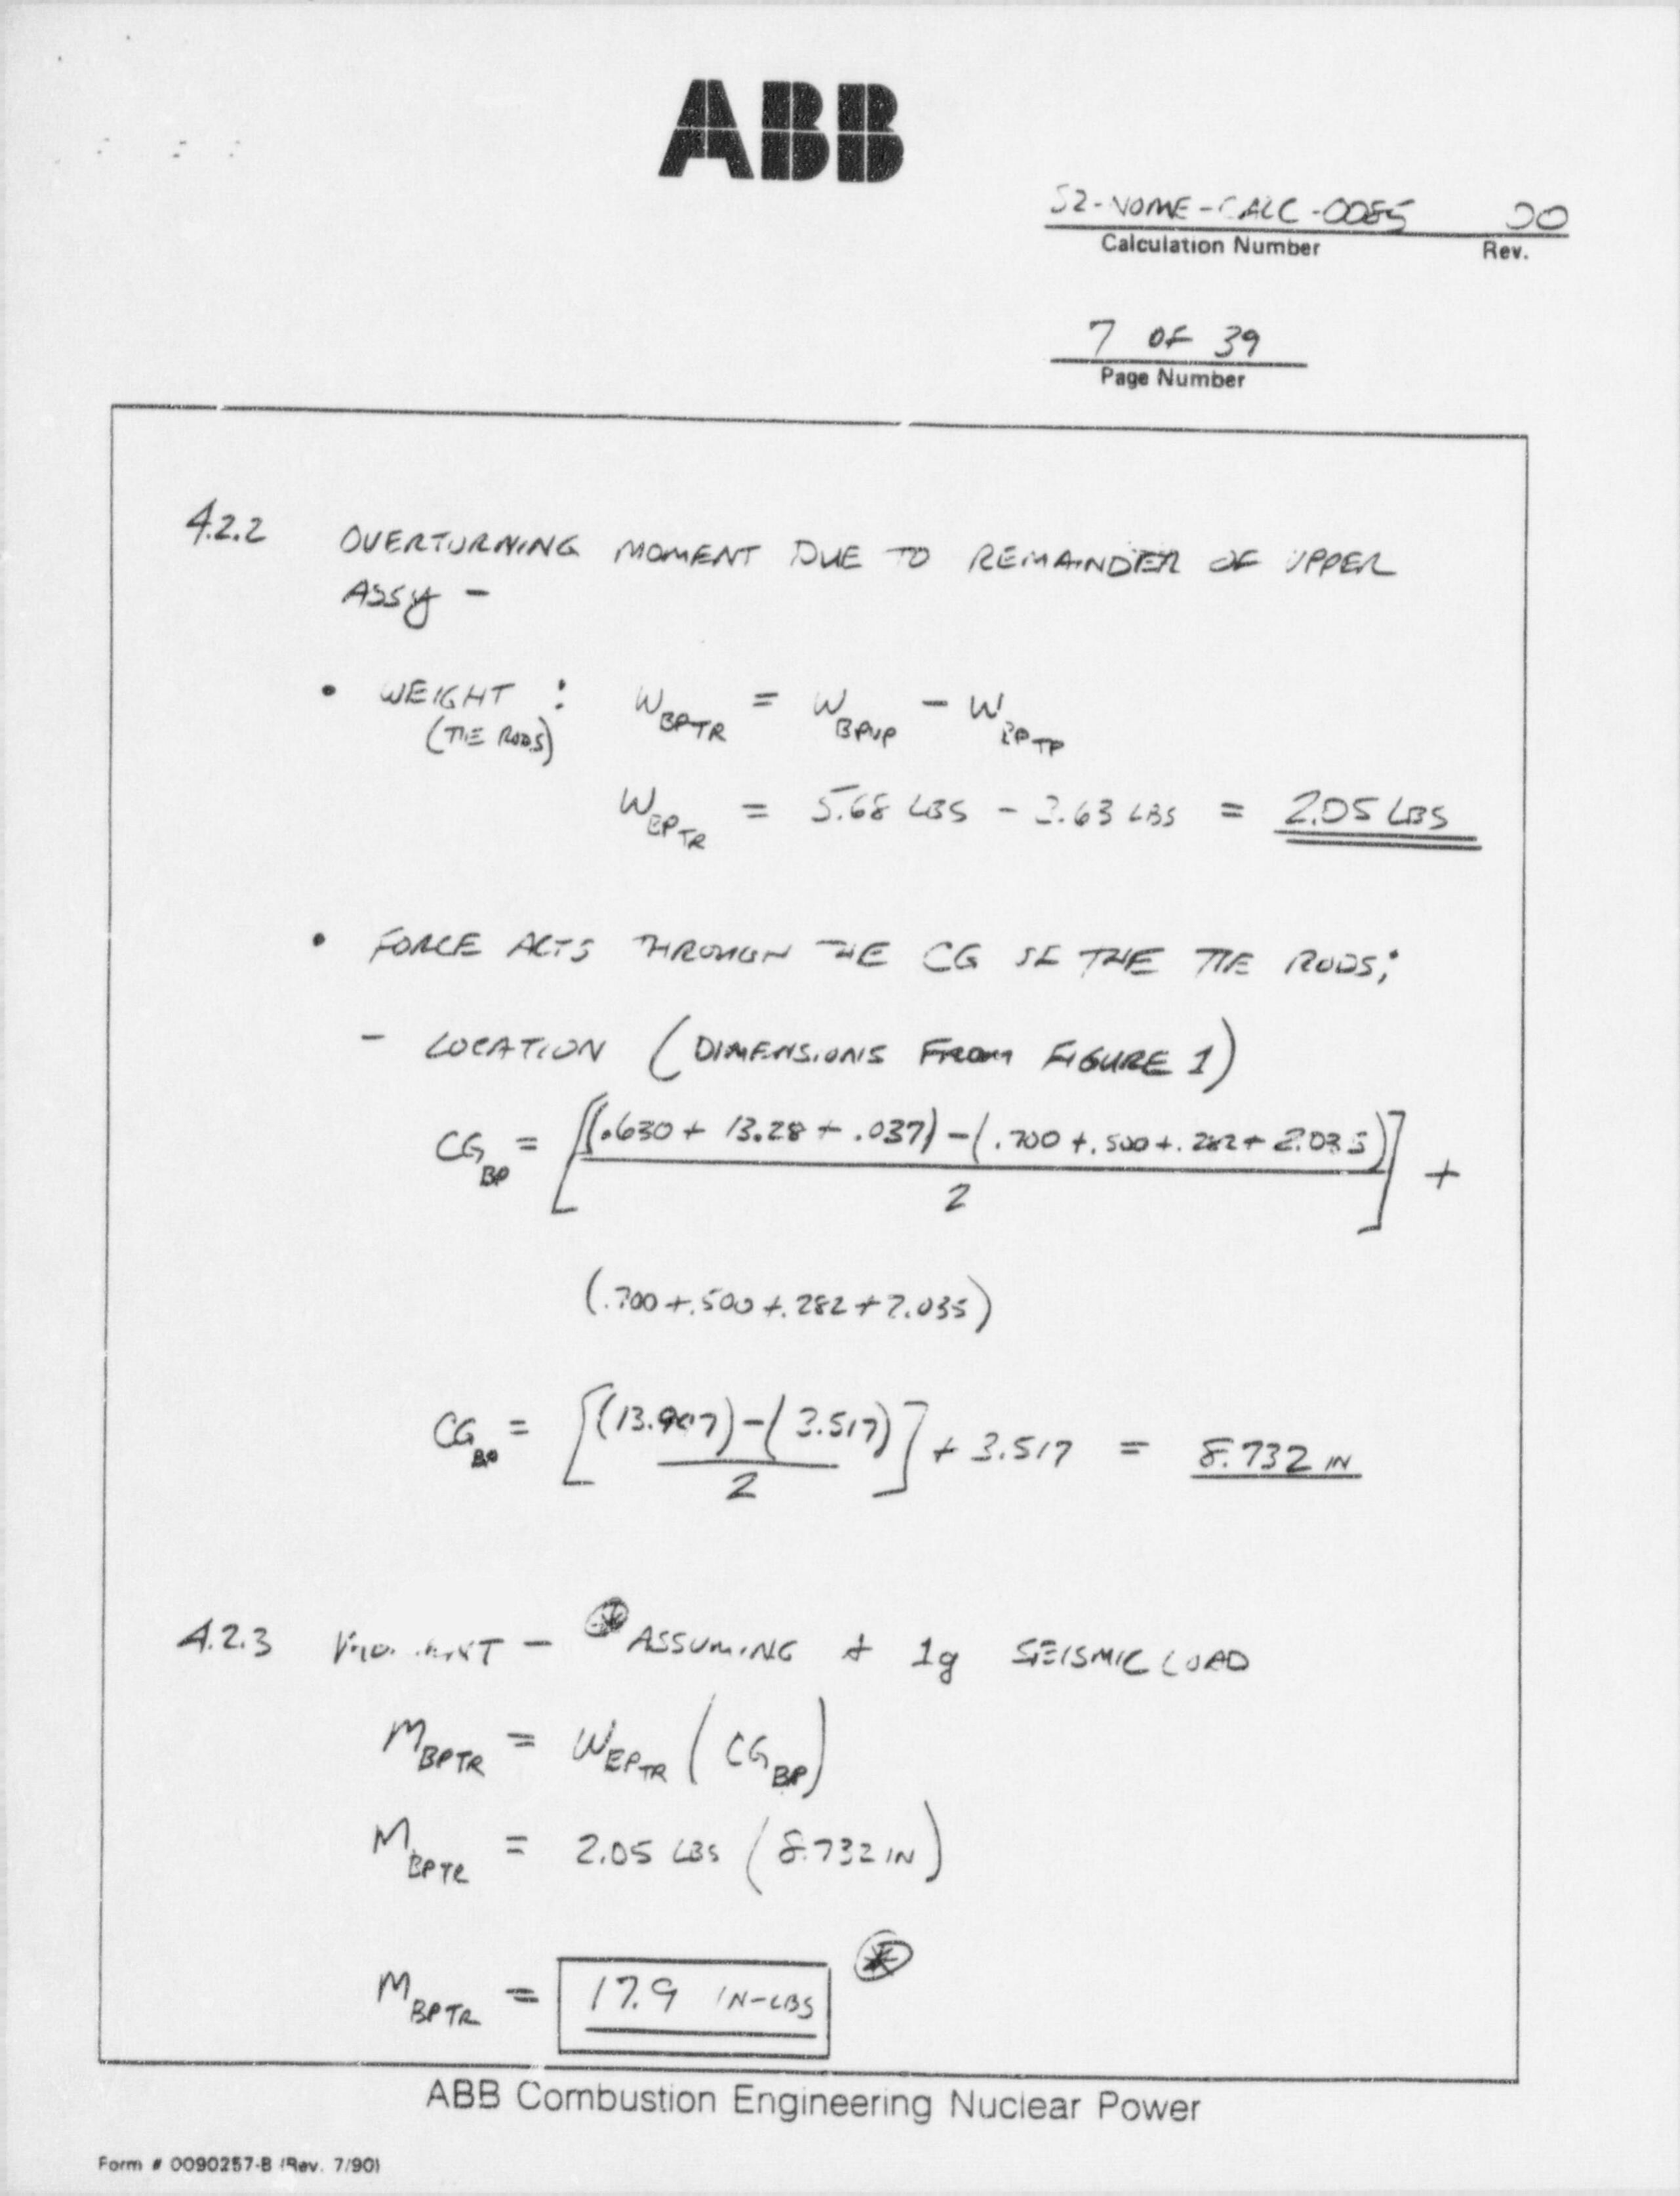 ABB
S2-NOME-CALC-0085 00
Calculation Number Rev.
7 OF 39
Page Number
4.2.2 OVERTURNING MOMENT DUE TO REMAINDER OF UPPER
ASSY -
• WEIGHT : W BPTR = W BPUP - W BPTP
(TIE RODS)
W BPTR = 5.68 LBS - 3.63 LBS = 2.05 LBS
• FORCE ACTS THROUGH THE CG OF THE TIE RODS;
- LOCATION (DIMENSIONS FROM FIGURE 1)
CG BP = [((.630 + 13.28 + .037) - (.700 + .500 + .282 + 2.035)) / 2] +
(.700 + .500 + .282 + 2.035)
CG BP = [((13.947) - (3.517)) / 2] + 3.517 = 8.732 IN
4.2.3 MOMENT - * ASSUMING A 1g SEISMIC LOAD
M BPTR = W BPTR (CG BP)
M BPTR = 2.05 LBS (8.732 IN)
M BPTR = 17.9 IN-LBS *
ABB Combustion Engineering Nuclear Power
Form # 0090257-B (Rev. 7/90)